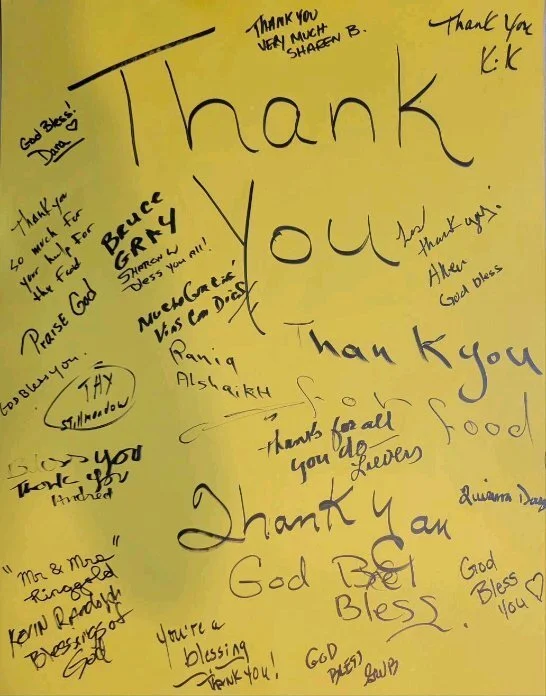 THANK YOU
VERY MUCH
SHAREN B.
Thank You
K.K
Thank
You
God Bless!
Dana ♡
Thank you
so much for
your help For
the Food
Praise God
BRUCE
GRAY
SHARON W
bless you all!
thank you
God bless
Rania
Alshaikh
Thank you
for food
God Bless you.
THY
Stillmeadow
Thanks for all
you do
Bless you
Thank You
Thank You
God
Bless
God
Bless
You ♡
"Mr & Mrs
Ringgold"
Kevin Randolph
Blessings of
God
You're a
blessing
THANK YOU!
GOD
BLESS